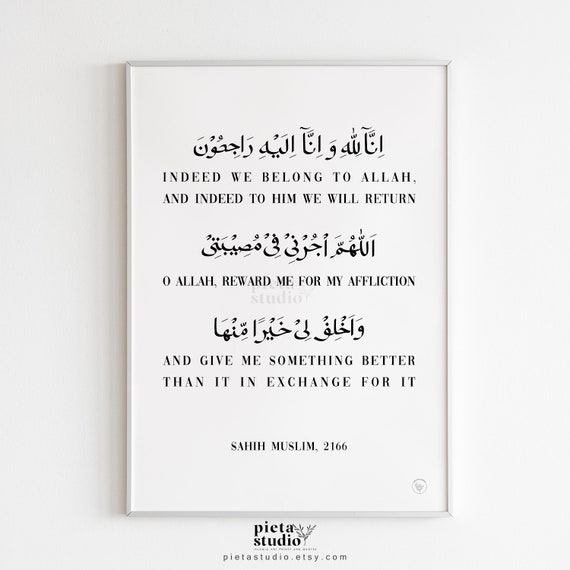 اِنَّالِلّٰهِ وَ اِنَّآ اِلَيْهِ رَاجِعُوْنَ
INDEED WE BELONG TO ALLAH,
AND INDEED TO HIM WE WILL RETURN
اَللّٰهُمَّ اْجُرْنِيْ فِيْ مُصِيْبَتِيْ
O ALLAH, REWARD ME FOR MY AFFLICTION
pieta
studio
وَاَخْلِفْ لِيْ خَيْرًا مِّنْهَا
AND GIVE ME SOMETHING BETTER
THAN IT IN EXCHANGE FOR IT
SAHIH MUSLIM, 2166
pieta
studio
ISLAMIC ART PRINTS AND QUOTES
pietastudio.etsy.com